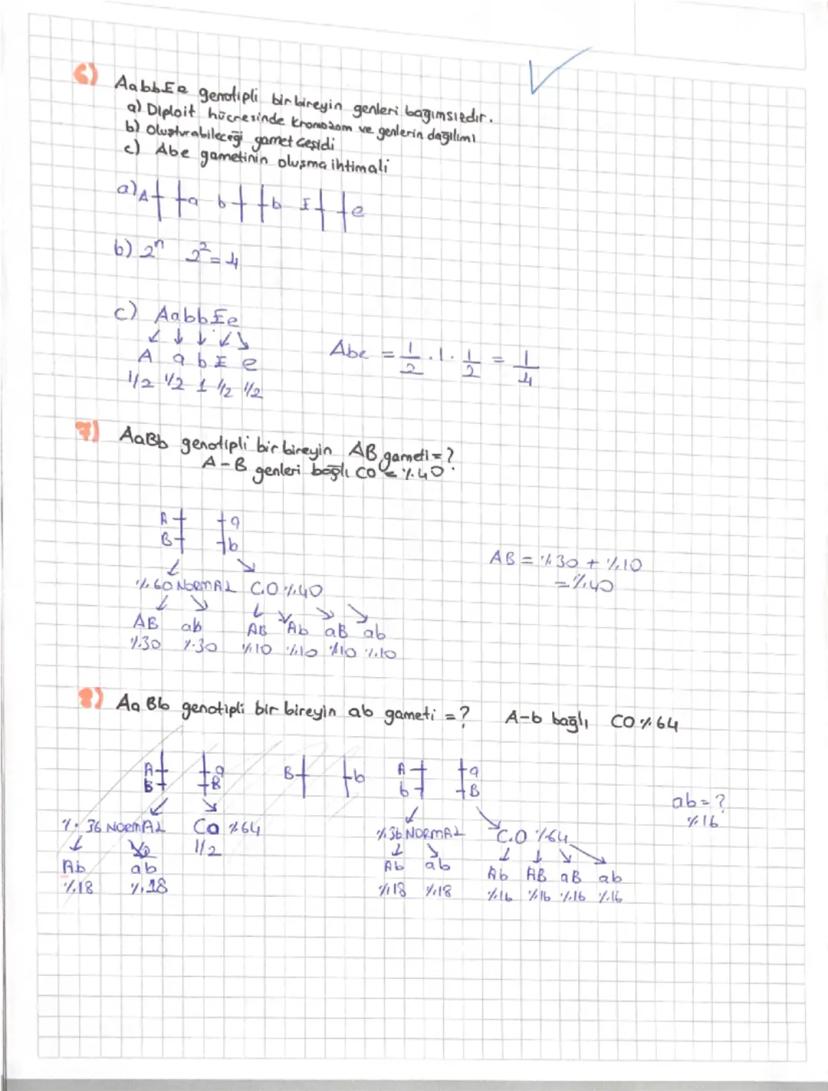 6) AabbEe genotipli bir bireyin genleri bağımsızdır.
a) Diploit hücresinde kromozom ve genlerin dağılımı
b) Oluşturabileceği gamet çeşidi
c) Abe gametinin oluşma ihtimali
a) A a b b E e
b) 2ⁿ 2² = 4
c) AabbEe
A a b E e
1/2 1/2 1 1/2 1/2
Abe = 1/2 . 1 . 1/2 = 1/4
7) AaBb genotipli bir bireyin AB gameti = ?
A-B genleri bağlı CO = %40
A a
B b
%60 NORMAL C.O %40
AB ab AB Ab aB ab
%30 %30 %10 %10 %10 %10
AB = %30 + %10
= %40
8) AaBb genotipli bir bireyin ab gameti = ? A-b bağlı CO %64
A a B b A a
B b B
%36 NORMAL Co %64 %36 NORMAL C.O %64
1/2
Ab ab Ab ab Ab AB aB ab
%18 %18 %18 %18 %16 %16 %16 %16
ab = ?
%16